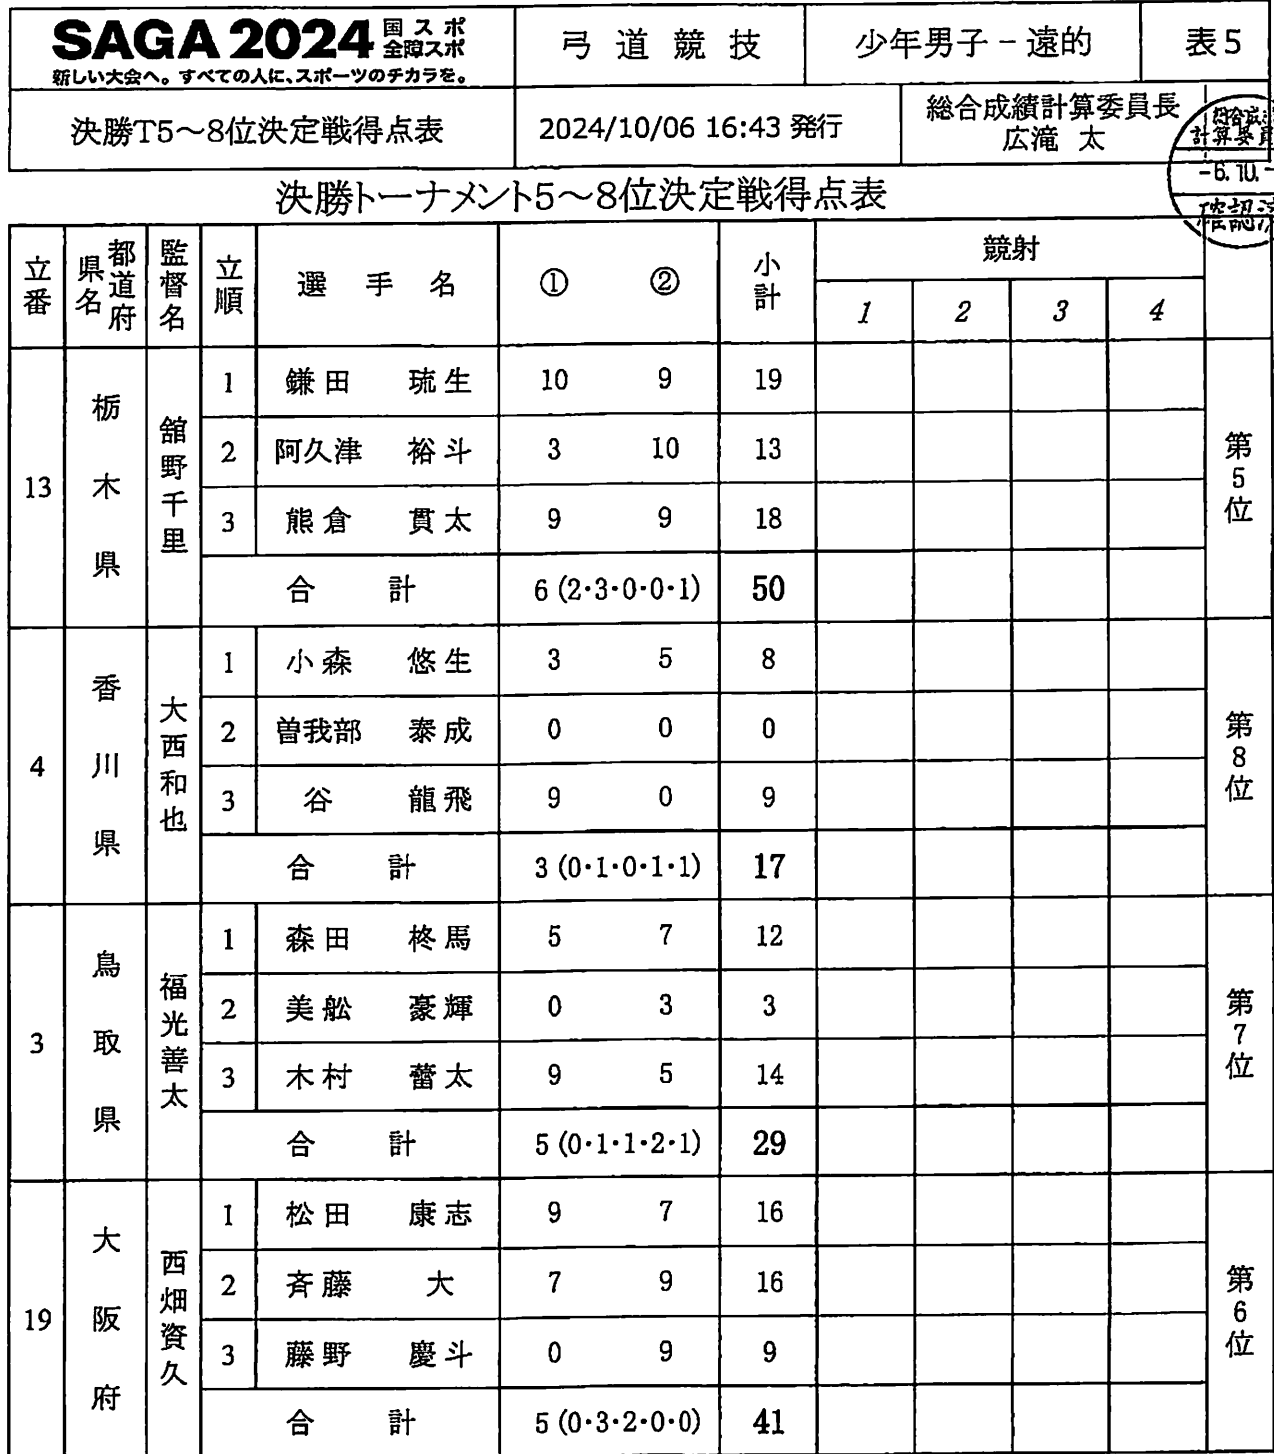 SAGA2024 国スポ 全障スポ
新しい大会へ。すべての人に、スポーツのチカラを。
弓道競技 少年男子 - 遠的 表5
決勝T5～8位決定戦得点表 2024/10/06 16:43 発行 総合成績計算委員長
広滝 太
計算委員
-6.10.-
確認済
決勝トーナメント5～8位決定戦得点表
立番 都道府県名 監督名 立順 選手名 ① ② 小計 競射
1 2 3 4
13 栃木県 舘野千里 第5位
1 鎌田 琉生 10 9 19
2 阿久津 裕斗 3 10 13
3 熊倉 貫太 9 9 18
合計 6 (2・3・0・0・1) 50
4 香川県 大西和也 第8位
1 小森 悠生 3 5 8
2 曽我部 泰成 0 0 0
3 谷 龍飛 9 0 9
合計 3 (0・1・0・1・1) 17
3 鳥取県 福光善太 第7位
1 森田 柊馬 5 7 12
2 美舩 豪輝 0 3 3
3 木村 蕾太 9 5 14
合計 5 (0・1・1・2・1) 29
19 大阪府 西畑資久 第6位
1 松田 康志 9 7 16
2 斉藤 大 7 9 16
3 藤野 慶斗 0 9 9
合計 5 (0・3・2・0・0) 41